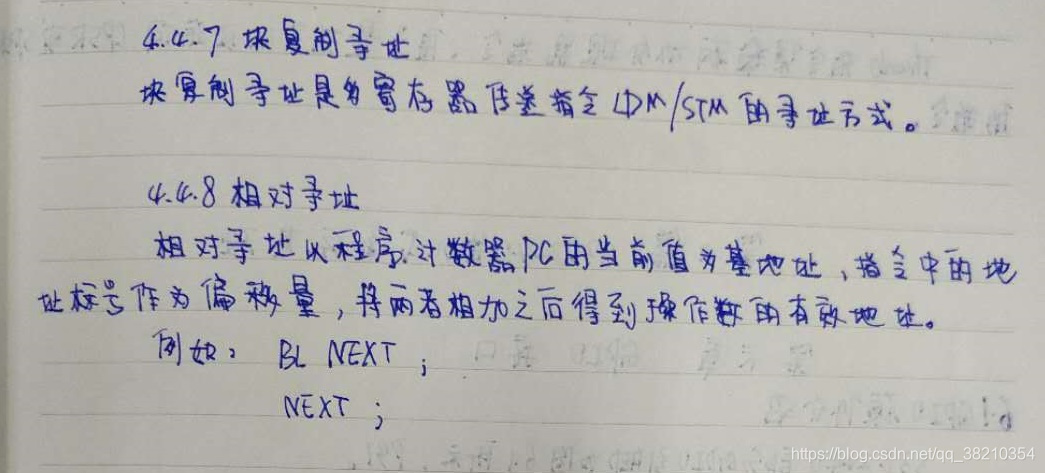 4.4.7 块复制寻址
块复制寻址是多寄存器传送指令LDM/STM的寻址方式。
4.4.8 相对寻址
相对寻址以程序计数器PC的当前值为基地址,指令中的地
址标号作为偏移量,将两者相加之后得到操作数的有效地址。
例如: BL NEXT ;
NEXT ;
https://blog.csdn.net/qq_38210354